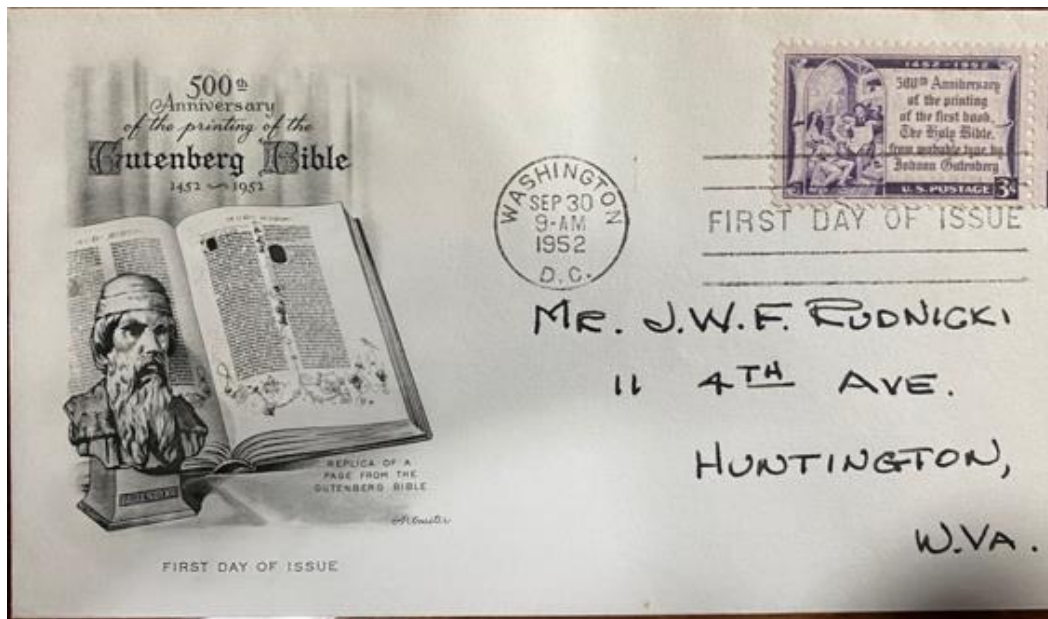 500th
Anniversary
of the printing of the
Gutenberg Bible
1452 1952
REPLICA OF A
PAGE FROM THE
GUTENBERG BIBLE
FIRST DAY OF ISSUE
WASHINGTON
SEP 30
9-AM
1952
D.C.
1452-1952
500th Anniversary
of the printing
of the first book,
The Holy Bible,
from movable type by
Johann Gutenberg
U.S. POSTAGE 3¢
FIRST DAY OF ISSUE
MR. J.W.F. RUDNICKI
11 4TH AVE.
HUNTINGTON,
W.VA.